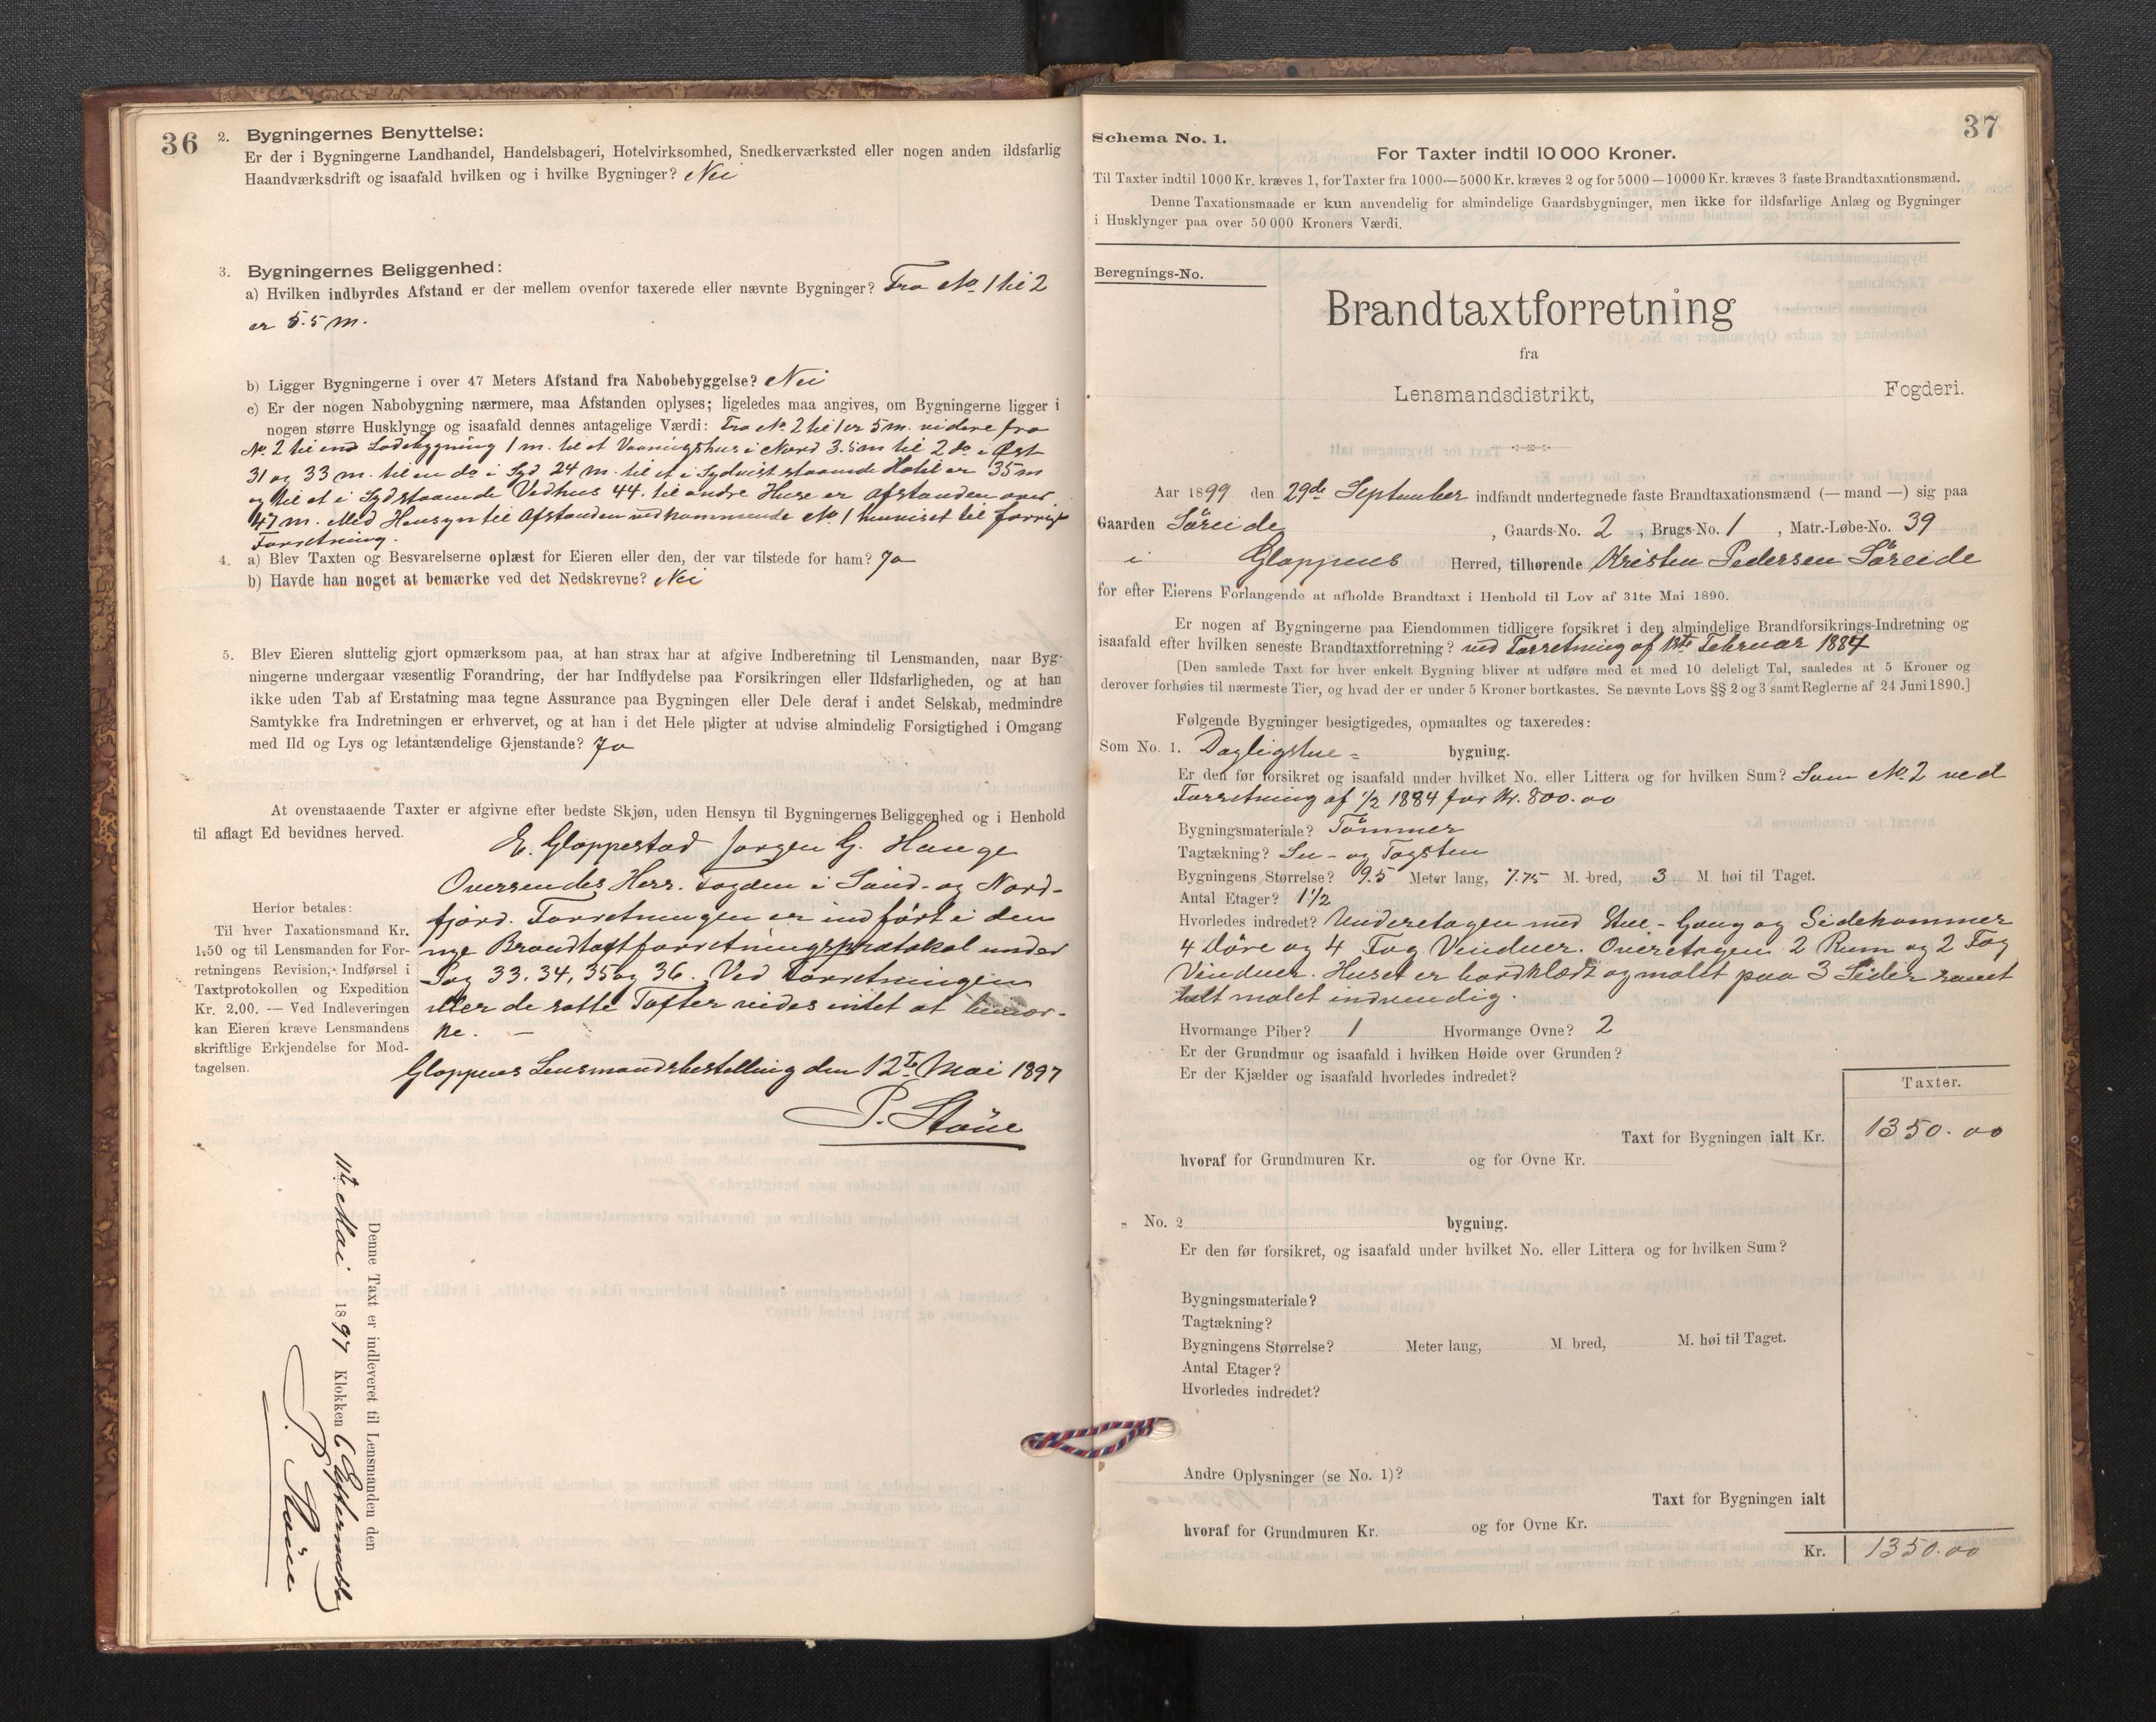 36
2. Bygningernes Benyttelse:
Er der i Bygningerne Landhandel, Handelsbageri, Hotelvirksomhed, Snedkerværksted eller nogen anden ildsfarlig
Haandværksdrift og isaafald hvilken og i hvilke Bygninger? Nei
3. Bygningernes Beliggenhed:
a) Hvilken indbyrdes Afstand er der mellem ovenfor taxerede eller nævnte Bygninger? Fra No 1 til 2
er 5.5 m.
b) Ligger Bygningerne i over 47 Meters Afstand fra Nabobebyggelse? Nei
c) Er der nogen Nabobygning nærmere, maa Afstanden oplyses; ligeledes maa angives, om Bygningerne ligger i
nogen større Husklynge og isaafald dennes antagelige Værdi: Fra No. 2 til 1 er 5 m. videre fra
No. 2 til end Ladebygning 1 m. til et Vaaningshus i Nord 3.5 m til 2 do i Øst
31 og 33 m. til en do i Syd 24 m. til et i Sydvest staaende Hotel er 35 m
og til et i Syd staaende Vedhus 44. til andre Huse er Afstanden over
47 m. Med Hensyn til Afstanden vedkommende No 1 henvises til forrige
Forretning.
4. a) Blev Taxten og Besvarelserne oplæst for Eieren eller den, der var tilstede for ham? Ja
b) Havde han noget at bemærke ved det Nedskrevne? Nei
5. Blev Eieren sluttelig gjort opmærksom paa, at han strax har at afgive Indberetning til Lensmanden, naar Byg-
ningerne undergaar væsentlig Forandring, der har Indflydelse paa Forsikringen eller Ildsfarligheden, og at han
ikke uden Tab af Erstatning maa tegne Assurance paa Bygningen eller Dele deraf i andet Selskab, medmindre
Samtykke fra Indretningen er erhvervet, og at han i det Hele pligter at udvise almindelig Forsigtighed i Omgang
med Ild og Lys og letantændelige Gjenstande? Ja
At ovenstaaende Taxter er afgivne efter bedste Skjøn, uden Hensyn til Bygningernes Beliggenhed og i Henhold
til aflagt Ed bevidnes herved.
E. Gloppestad Jørgen G. Hauge
Oversendes Herr. Fogden i Sønd- og Nord-
fjord. Forretningen er indført i den
nye Brandtaxtforretningsprotokol under
Pag 33, 34, 35 og 36. Ved Forretningen
eller de satte Taxter vides intet at bemær-
ke. —
Gloppens Lensmandsbestilling den 12te Mai 1897
P. Støne
Herfor betales:
Til hver Taxationsmand Kr.
1.50 og til Lensmanden for For-
retningens Revision, Indførsel i
Taxtprotokollen og Expedition
Kr. 2,00. — Ved Indleveringen
kan Eieren kræve Lensmandens
skriftlige Erkjendelse for Mod-
tagelsen.
Denne Taxt er indleveret til Lensmanden den
11te Mai 1897 Klokken 6 Eftermiddag
P. Støne
37
Schema No. 1.
For Taxter indtil 10 000 Kroner.
Til Taxter indtil 1000 Kr. kræves 1, for Taxter fra 1000—5000 Kr. kræves 2 og for 5000—10000 Kr. kræves 3 faste Brandtaxationsmænd.
Denne Taxationsmaade er kun anvendelig for almindelige Gaardsbygninger, men ikke for ildsfarlige Anlæg og Bygninger
i Husklynger paa over 50 000 Kroners Værdi.
Beregnings-No.
Brandtaxtforretning
fra
Lensmandsdistrikt, Fogderi.
Aar 1899 den 29de September indfandt undertegnede faste Brandtaxationsmænd (— mand —) sig paa
Gaarden Søreide, Gaards-No. 2, Brugs-No. 1, Matr.-Løbe-No. 39
i Gloppens Herred, tilhørende Kristen Pedersen Søreide
for efter Eierens Forlangende at afholde Brandtaxt i Henhold til Lov af 31te Mai 1890.
Er nogen af Bygningerne paa Eiendommen tidligere forsikret i den almindelige Brandforsikrings-Indretning og
isaafald efter hvilken seneste Brandtaxtforretning? ved Forretning af Februar 1884
[Den samlede Taxt for hver enkelt Bygning bliver at udføre med et med 10 deleligt Tal, saaledes at 5 Kroner og
derover forhøies til nærmeste Tier, og hvad der er under 5 Kroner bortkastes. Se nævnte Lovs §§ 2 og 3 samt Reglerne af 24 Juni 1890.]
Følgende Bygninger besigtigedes, opmaaltes og taxeredes:
Som No. 1. Dagligstue- bygning.
Er den før forsikret og isaafald under hvilket No. eller Littera og for hvilken Sum? Som No. 2 ved
Forretning af 1/2 1884 for Kr. 800.00
Bygningsmateriale? Tømmer
Tagtækning? Su- og Tagsten
Bygningens Størrelse? 9.5 Meter lang, 7.75 M. bred, 3 M. høi til Taget.
Antal Etager? 1½
Hvorledes indret? Underetagen med Stue- Gang og Sidekammer
4 Døre og 4 Fag Vinduer. Overetagen 2 Rum og 2 Fag
Vinduer. Huset er bordklædt og malet paa 3 Sider samt
helt malet indvendig.
Hvormange Piber? 1 Hvormange Ovne? 2
Er der Grundmur og isaafald i hvilken Høide over Grunden?
Er der Kjælder og isaafald hvorledes indredet?
Taxter.
Taxt for Bygningen ialt Kr. 1350.00
hvoraf for Grundmuren Kr. og for Ovne Kr.
„ No. 2 bygning.
Er den før forsikret, og isaafald under hvilket No. eller Littera og for hvilken Sum?
Bygningsmateriale?
Tagtækning?
Bygningens Størrelse? Meter lang, M. bred, M. høi til Taget.
Antal Etager?
Hvorledes indredet?
Andre Oplysninger (se No. 1)?
Taxt for Bygningen ialt
hvoraf for Grundmuren Kr. og for Ovne Kr.
Kr. 1350.00